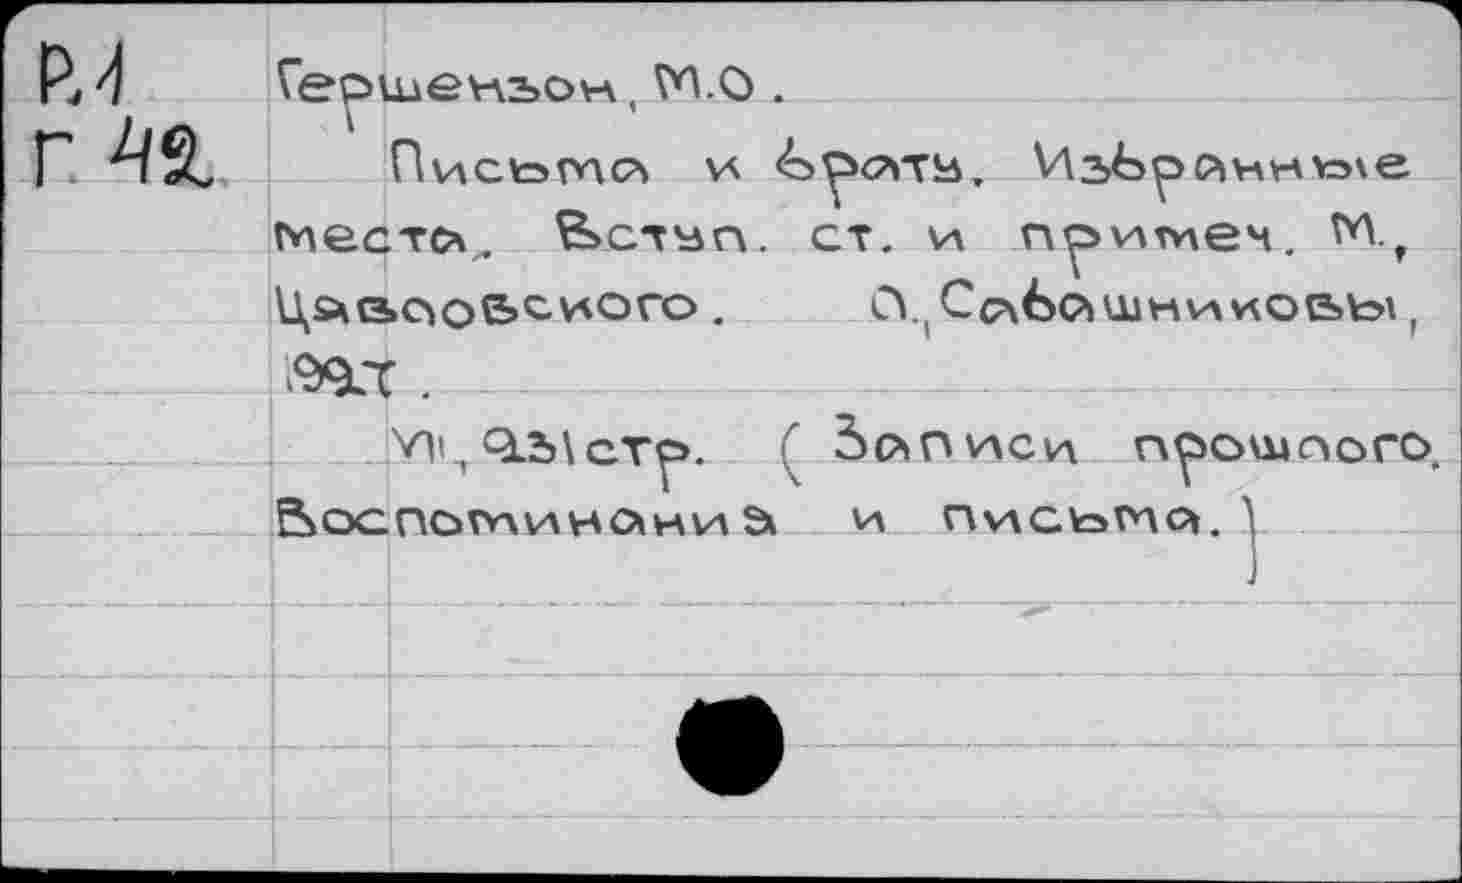 Р1 Гершензон, М.О.
Г 42 Письма к брату. Избранные
места. Вступ. ст. и примеч. М.,
Цявловского. Л., Сабашниковы,
1927.
VII, 231 стр. (Записи прошлого.
Воспоминания и письма.)